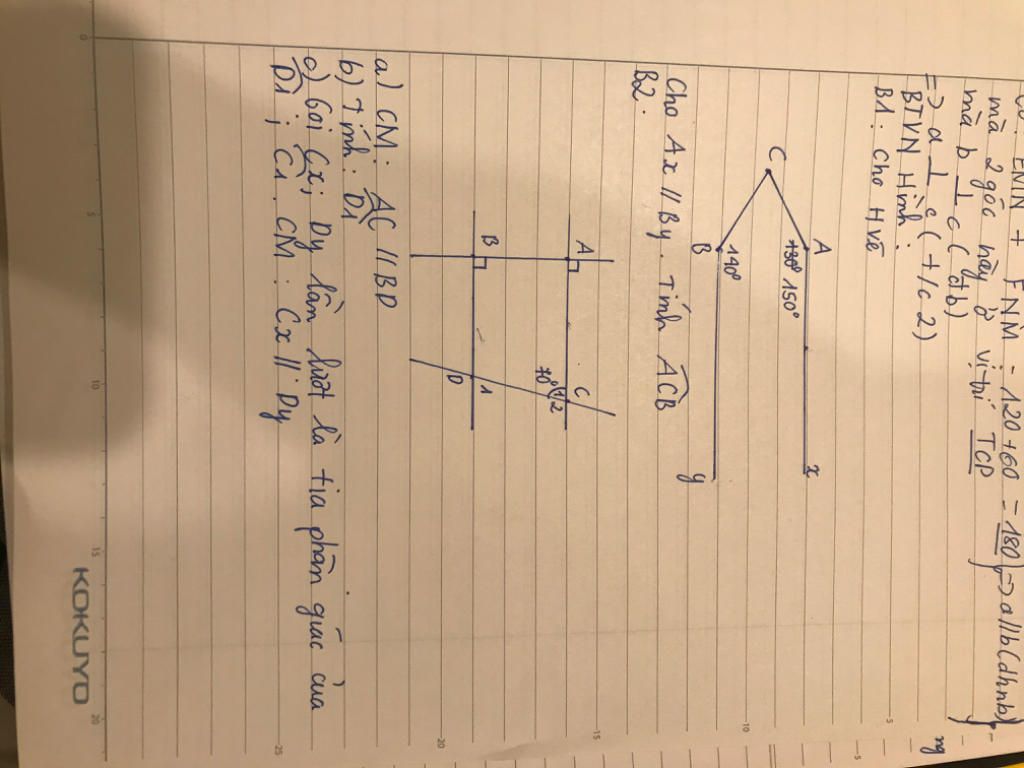 ENN + FNM - 120 + 60 = 180) => a//b (dhnb)
mà 2 góc này ở vị trí TCP
mà b ⊥ c (đtb)
=> a ⊥ c (t/c 2)
BTVN Hình:
B1: Cho H.vẽ
A
x
150°
C
140°
B
y
Cho Ax // By. Tính ACB
B2.
A
C
70°
2
B
1
D
a) CM: AC // BD
b) Tính: D1
c) Gọi Cx; Dy lần lượt là tia phân giác của
D1; C1. CM: Cx // Dy
KOKUYO
0
5
10
15
20
5
10
15
20
25